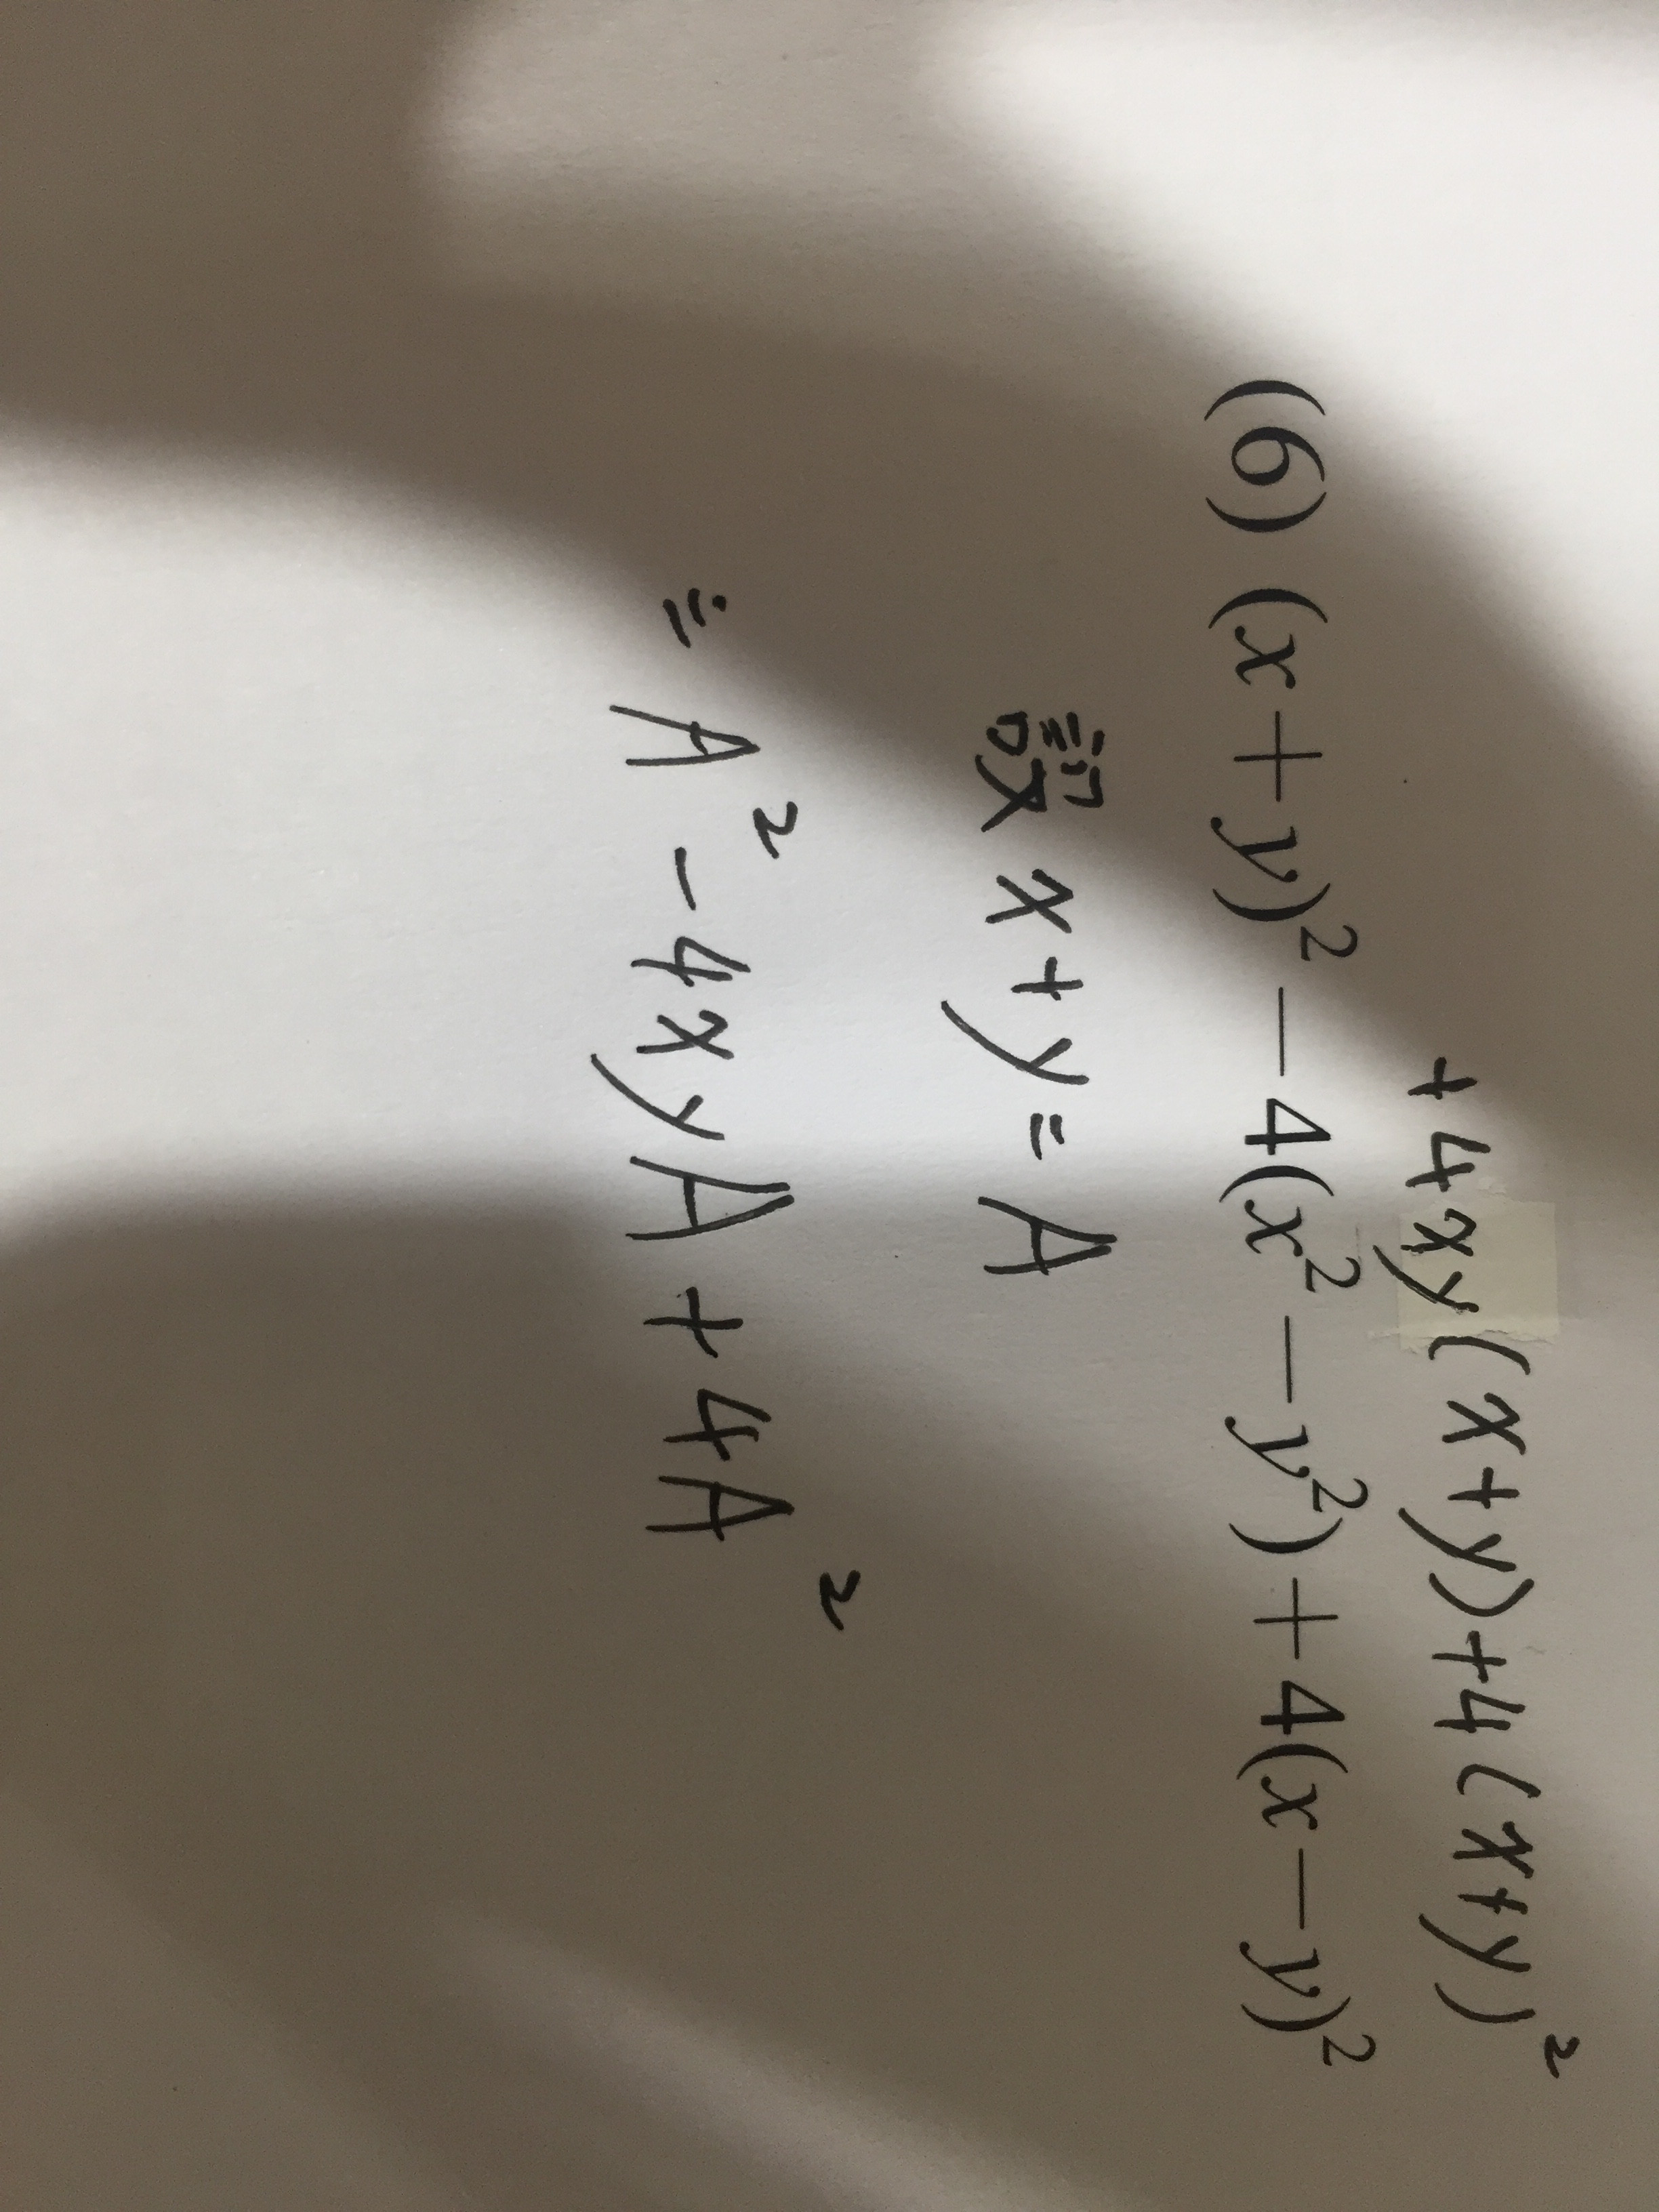 +4xy(x+y)+4(x+y)²
(6) (x+y)²−4(x²−y²)+4(x−y)²
設x+y=A
=A²-4xyA+4A²